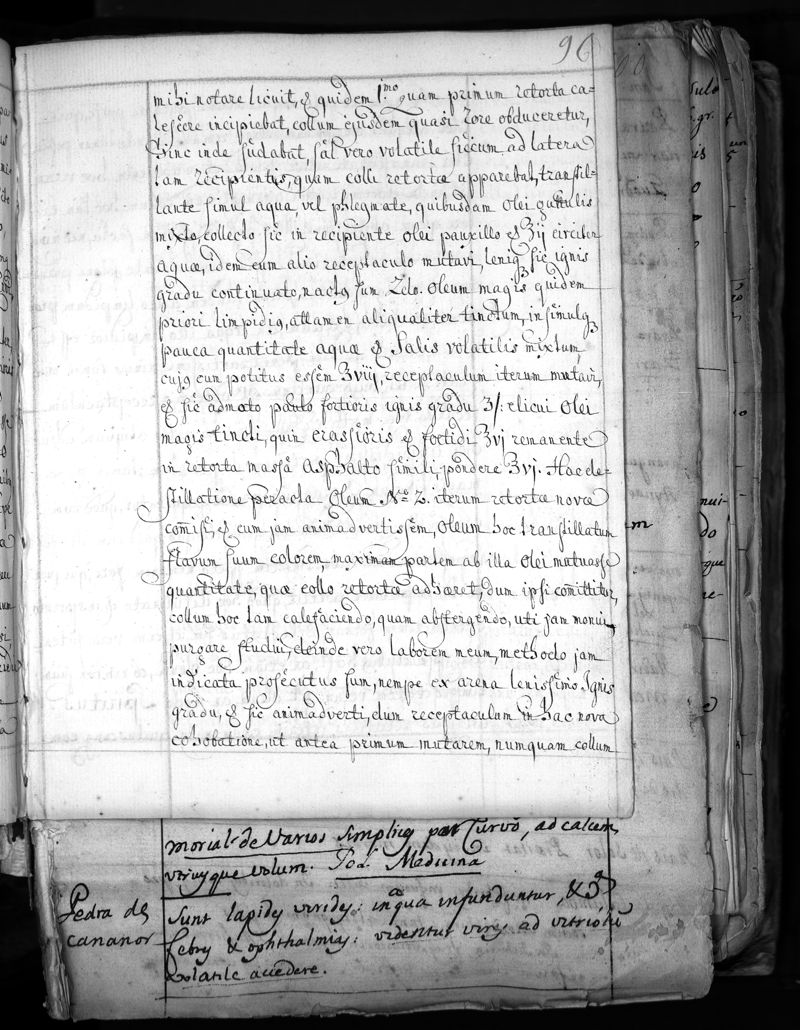 96
mihi notare licuit, & quidem 1.mo quam primum retorta ca-
lescere incipiebat, collum ejusdem quasi rore obduceretur,
hinc inde sudabat, sal vero volatile siccum ad latera
tam recipientis, quam colli retortæ apparebat, transtil-
lante simul aqua, vel phlegmate, quibusdam olei guttulis
mixto, collecto sic in recipiente olei pauxillo & ʒij circiter
aquæ, idem cum alio receptaculo mutavi, leniq; sic ignis
gradu continuato, nactus sum 2do. oleum magis quidem
priori limpidiq, attamen aliqualiter tinctum, insimulq;
pauca quantitate aquæ & salis volatilis mixtum
cujq cum potitus essem ʒviij, receptaculum iterum mutavi,
& sic admoto paulo fortioris ignis gradu elicui olei
magis tincti, quin crassioris & foetidi ʒvj remanente
in retorta massa asphalto simili, pondere ʒvj. Hac de-
stillatione peracta oleum No 2. iterum retortæ novæ
com̃isi, & cum jam animadvertissem, oleum hoc transtillatum
flavum suum colorem, maximam partem ab illa olei mutuasse
quantitate, quæ collo retortæ adhæret, dum ipsi com̃ittitur,
collum hoc tam calefaciendo, quam abstergendo, uti jam monui,
purgare studui, deinde vero laborem meum, methodo jam
indicata prosecutus sum, nempe ex arena lenissimo Ignis
gradu, & sic animadverti, dum receptaculum in hac nova
cohobatione, ut antea primum mutarem, numquam collum
morial. de Varios simplicq par Curvõ, ad calcem
utriusque volum. Joa. Medicina
Pedra de
cananor
Sunt lapidq viridq: in aqua infunduntur, &
febrq & ophthalmiq: videntur virq ad vitriolũ
volatile accedere.